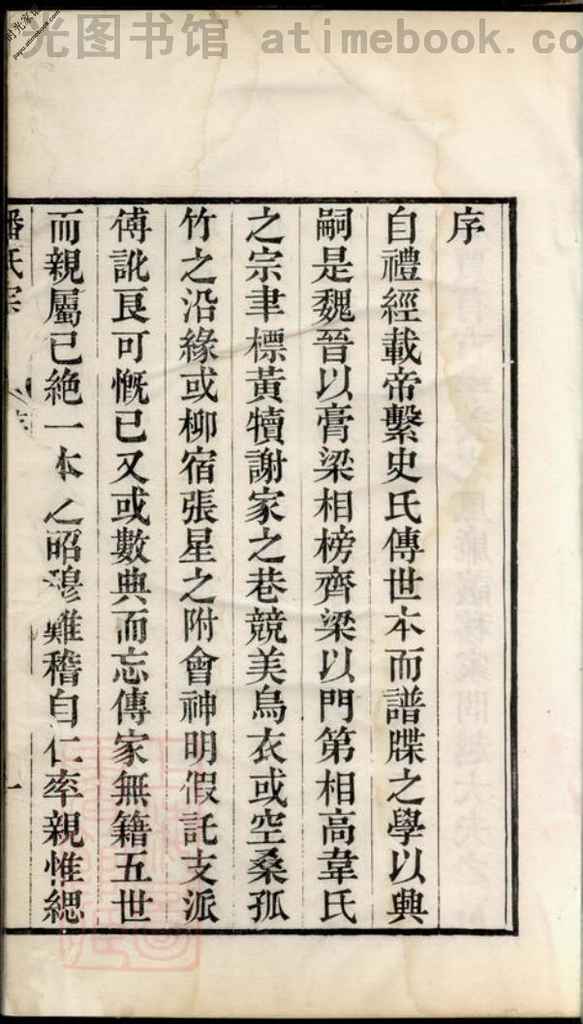 光图书馆 atimebook.co
序
自禮經載帝繫史氏傳世本而譜牒之學以興
嗣是魏晉以膏梁相榜齊梁以門第相高韋氏
之宗聿標黃犢謝家之巷競美烏衣或空桑孤
竹之沿緣或柳宿張星之附會神明假託支派
傅訛良可慨已又或數典而忘傳家無籍五世
而親屬已絶一本之昭穆難稽自仁率親惟緦
潘氏宗
一